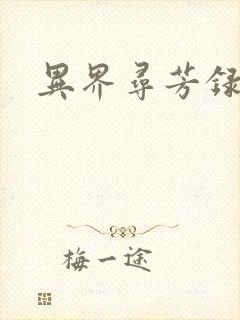 異界尋芳録
梅一途